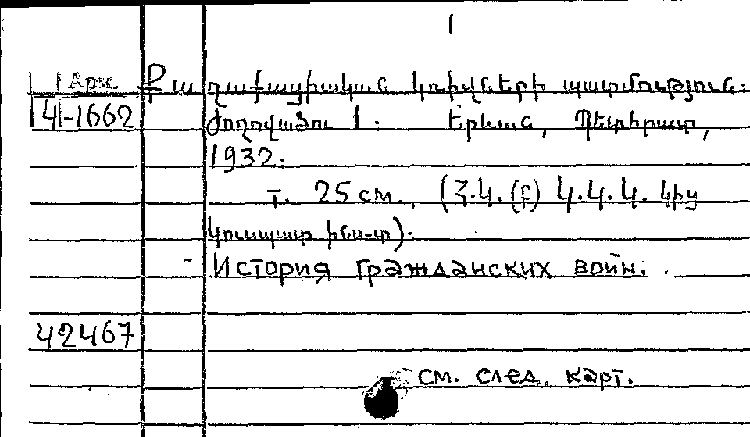 1
1 Арм. Քաղաքացիական կռիվների պատմություն:
41-1662 Ժողովածու 1: Երևան, Պետհրատ,
1932:
т. 25 см., (Հ.Կ.(բ) Կ.Կ.Կ. կից
կուսպատ ինս-տ).
- История гражданских войн.
42467
см. след. карт.